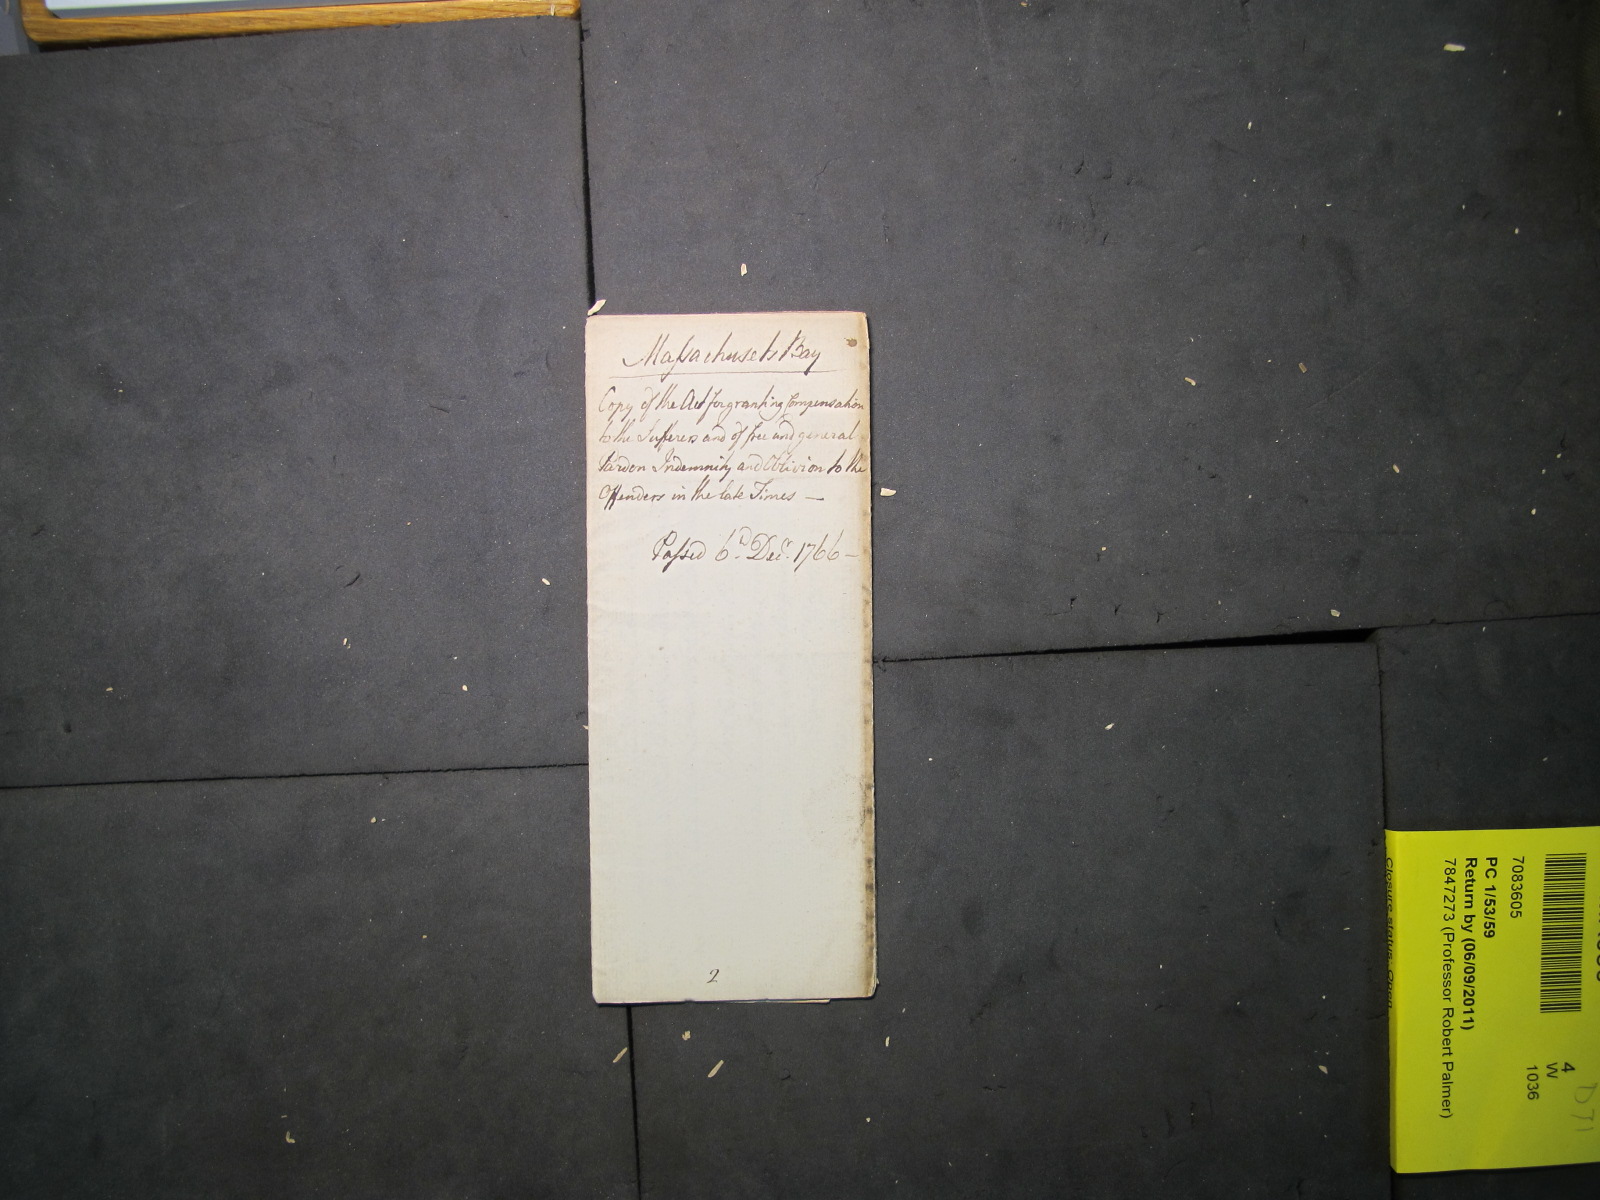 Massachusets Bay
Copy of the Act for granting Compensation
to the Sufferers and of free and general
Pardon Indemnity and Oblivion to the
Offenders in the late Times —
Passed 6.th Decr. 1766 —
2
7083605
PC 1/53/59
Return by (06/09/2011)
7847273 (Professor Robert Palmer)
Closure status: Open
4
W
1036